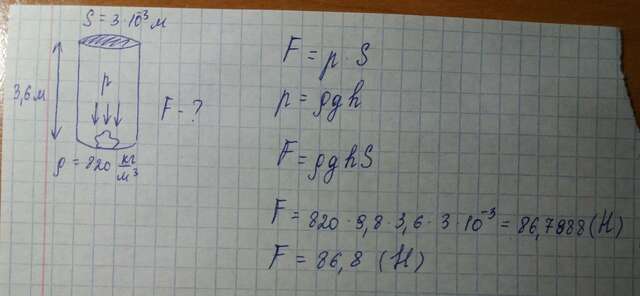 S = 3 · 10⁻³ м
3,6 м
p
F - ?
ρ = 820 кг/м³
F = p · S
p = ρgh
F = ρghS
F = 820 · 9,8 · 3,6 · 3 · 10⁻³ = 86,7988 (Н)
F = 86,8 (Н)